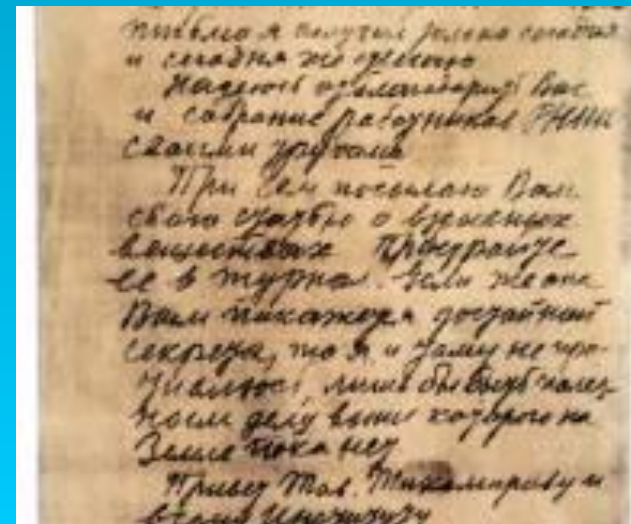 письмо я получил только сегодня
и сегодня же
Надеюсь отблагодарить Вас
и собрание работников РНИИ
своими трудами
При сем посылаю Вам
свою статью о взрывных
веществах
ее в журна. Если же она
Вам покажется достойной
секрета, то я и тому не про-
тивлюсь, лишь бы быть полез-
ным делу выше которого на
Земле пока нет
Привет Тов. Тихомирову и
всему Институту